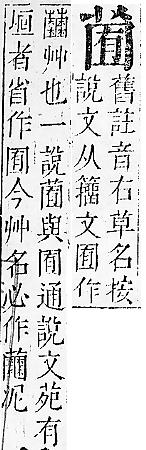 舊註音右草名按
說文从籀文囿作
艸也一說與囿通說文苑有
垣者省作囿今艸名必作泥